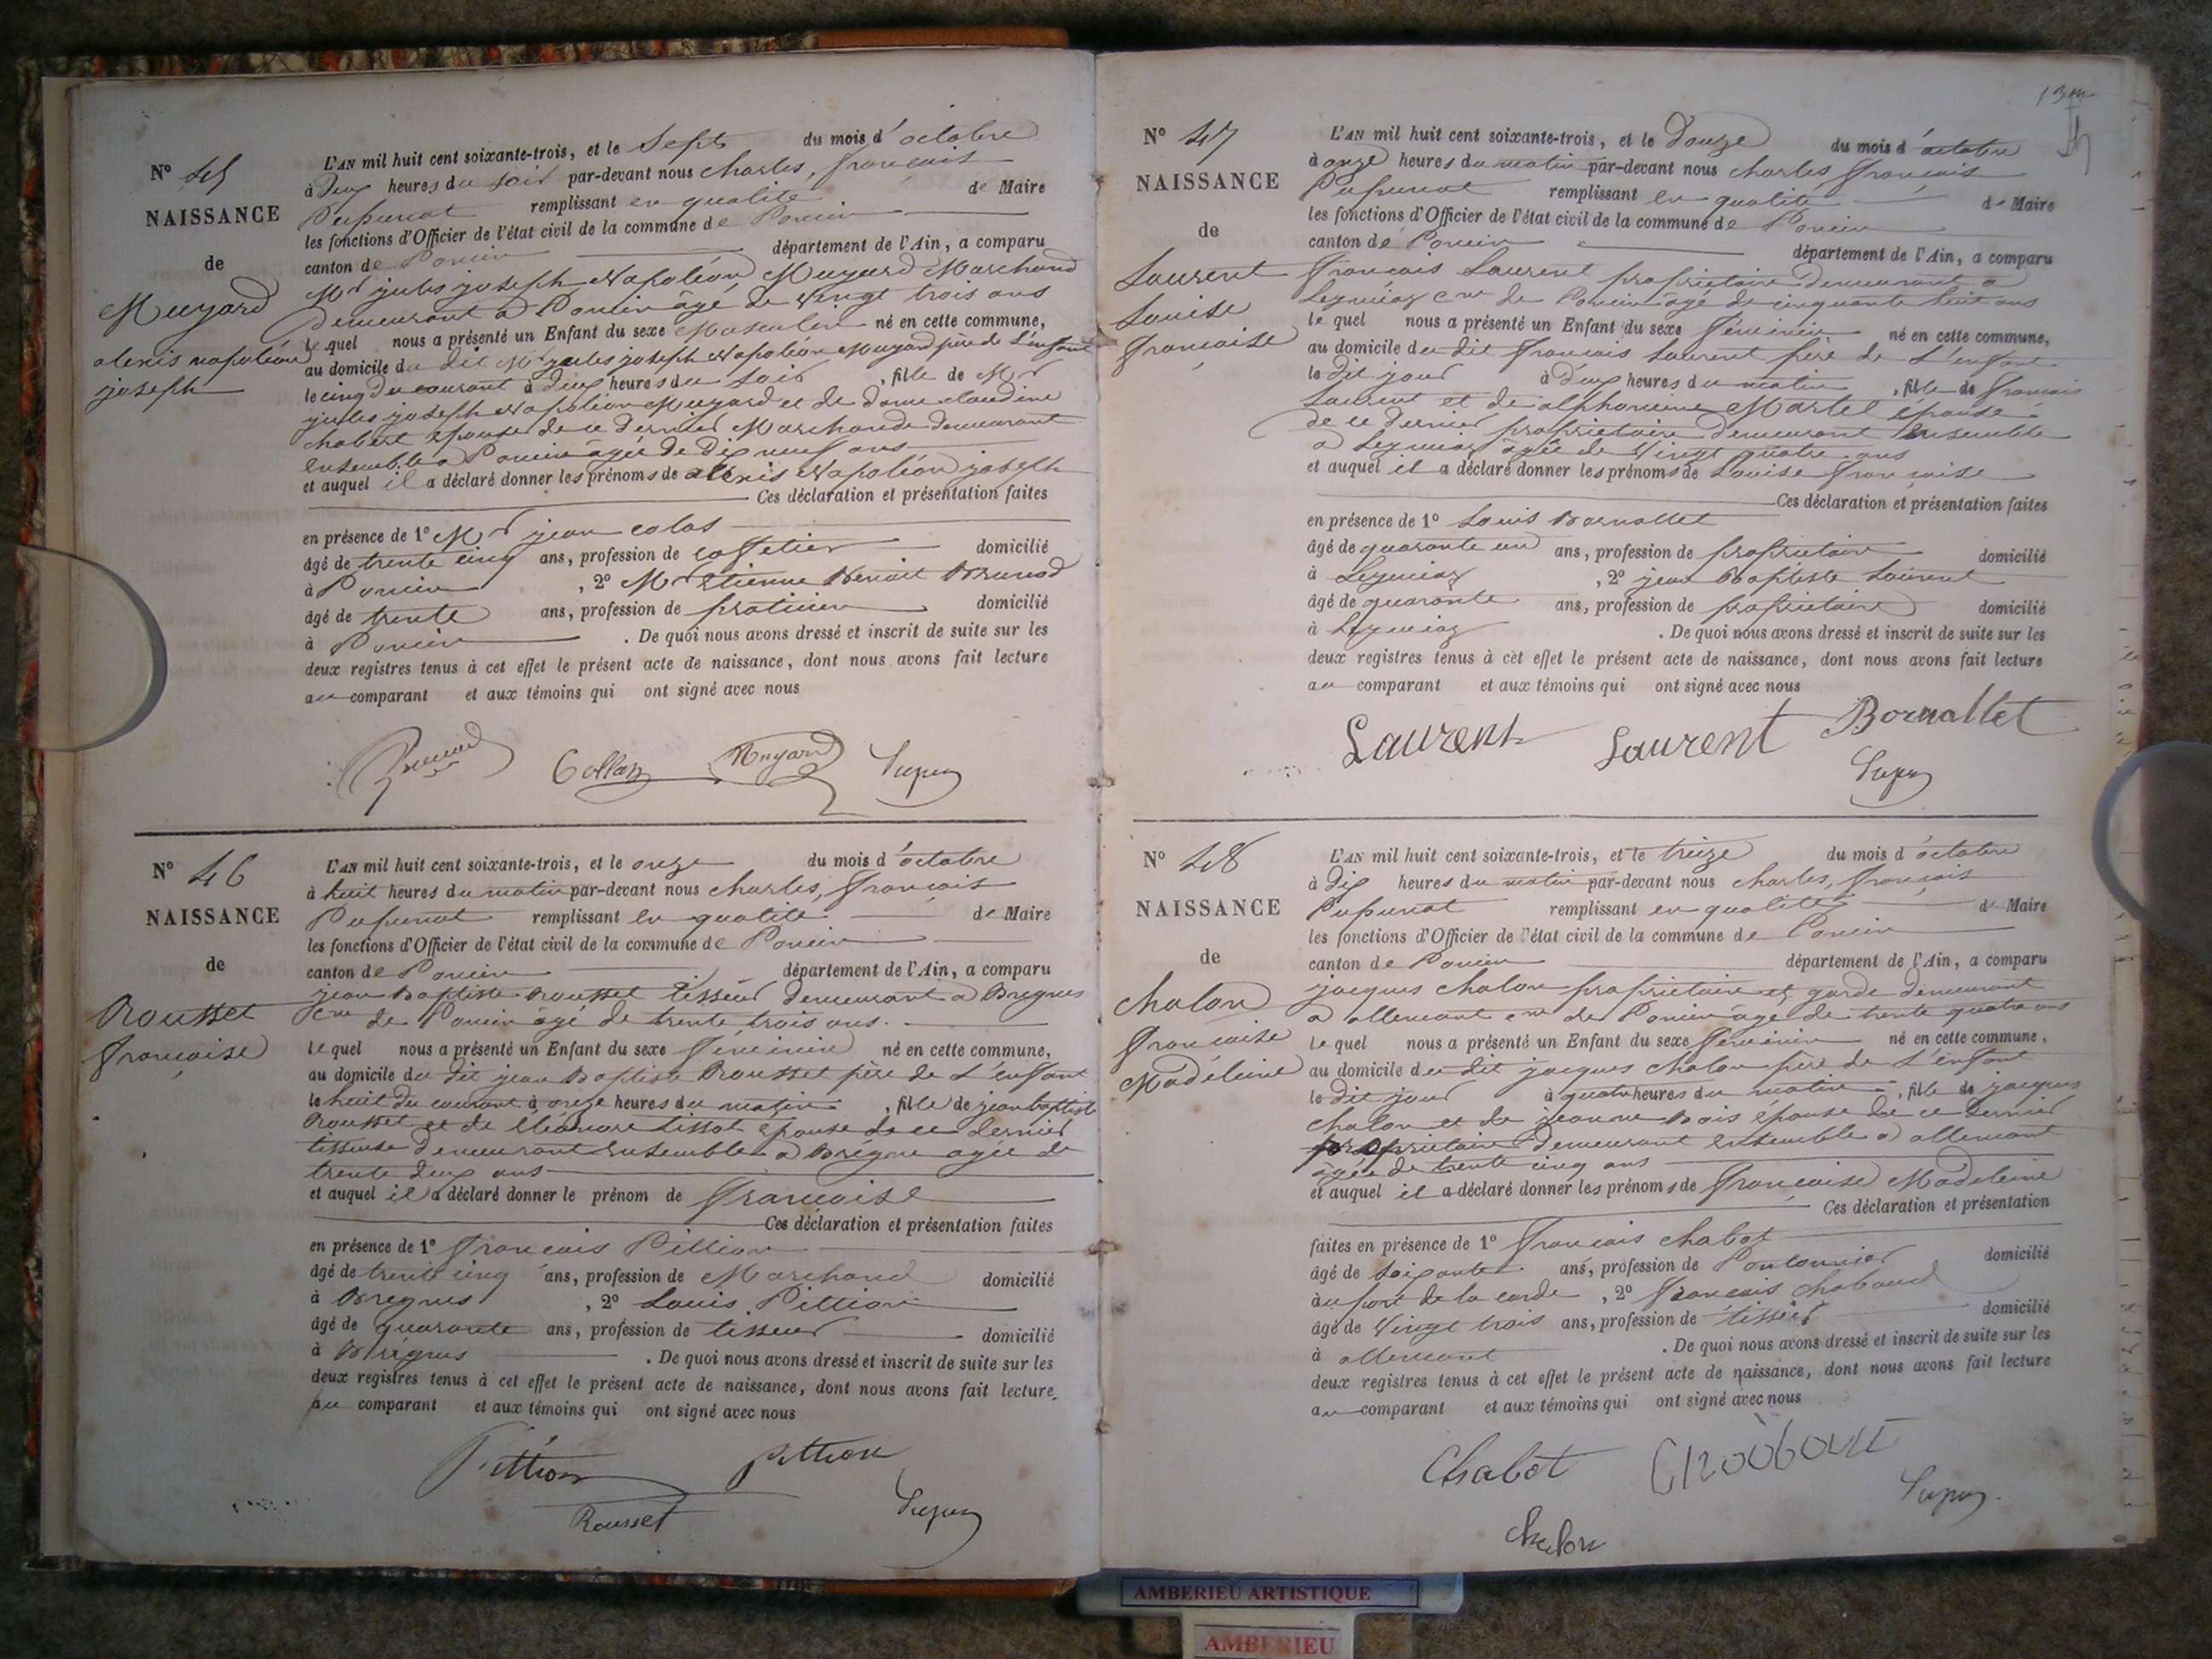 N° 45
NAISSANCE
de
Muyard
alexis napoléon
joseph
L'AN mil huit cent soixante-trois, et le Sept du mois d'octobre
à Deux heures du soir par-devant nous charles, françois
Pupunat remplissant en qualité de Maire
les fonctions d'Officier de l'état civil de la commune de Poncin
canton de Poncin département de l'Ain, a comparu
Mr jules joseph Napoléon Muyard Marchand
Demeurant à Poncin agé de vingt trois ans
lequel nous a présenté un Enfant du sexe Masculin né en cette commune,
au domicile du dit Mr jules joseph Napoléon Muyard père de L'enfant
le cinq du courant à deux heures du soir, fils de Mr
jules joseph Napoléon Muyard et de dame claudine
chabert épouse de ce dernier Marchande demeurant
ensemble a Poncin âgée de Dix neuf ans
et auquel il a déclaré donner les prénoms de alexis Napoléon joseph
Ces déclaration et présentation faites
en présence de 1° Mr jean colas
âgé de trente cinq ans, profession de caffetier domicilié
à Poncin, 2° Mr Etienne Benoit Brunod
âgé de trente ans, profession de praticien domicilié
à Poncin. De quoi nous avons dressé et inscrit de suite sur les
deux registres tenus à cet effet le présent acte de naissance, dont nous avons fait lecture
au comparant et aux témoins qui ont signé avec nous
Collas Muyard
N° 46
NAISSANCE
de
Rousset
françoise
L'AN mil huit cent soixante-trois, et le onze du mois d'octobre
à huit heures du matin par-devant nous charles, françois
Pupunat remplissant en qualité de Maire
les fonctions d'Officier de l'état civil de la commune de Poncin
canton de Poncin département de l'Ain, a comparu
jean Baptiste Rousset tisseur demeurant a Bregnes
cne de Poncin âgé de trente trois ans.
lequel nous a présenté un Enfant du sexe féminin né en cette commune,
au domicile du dit jean Baptiste Rousset père de L'enfant
le huit du courant à onze heures du matin, fille de jean baptiste
Rousset et de Eléonore tissot épouse de ce dernier
tisseuse demeurant Ensemble a Brégne agée de
trente deux ans
et auquel il a déclaré donner le prénom de françoise
Ces déclaration et présentation faites
en présence de 1° françois Pittion
âgé de trente cinq ans, profession de Marchand domicilié
à Bregnes, 2° Louis Pittion
âgé de quarante ans, profession de tisseur domicilié
à Brégnes. De quoi nous avons dressé et inscrit de suite sur les
deux registres tenus à cet effet le présent acte de naissance, dont nous avons fait lecture
au comparant et aux témoins qui ont signé avec nous
Pittion pittion
Rousset
N° 47
NAISSANCE
de
Laurent
Louise
françoise
L'AN mil huit cent soixante-trois, et le Douze du mois d'octobre
à onze heures du matin par-devant nous charles françois
Pupunat remplissant en qualité de Maire
les fonctions d'Officier de l'état civil de la commune de Poncin
canton de Poncin département de l'Ain, a comparu
françois Laurent propriétaire demeurant a
Leymiaz cne de Poncin âgé de cinquante huit ans
lequel nous a présenté un Enfant du sexe féminin né en cette commune,
au domicile du dit françois Laurent père de L'enfant
le dit jour à deux heures du matin, fille de françois
Laurent et de alphonsine Martel épouse
de ce dernier propriétaire demeurant Ensemble
a Leymiaz âgée de vingt quatre ans
et auquel il a déclaré donner les prénoms de Louise françoise
Ces déclaration et présentation faites
en présence de 1° Louis Bornallet
âgé de quarante un ans, profession de propriétaire domicilié
à Leymiaz, 2° jean Baptiste Laurent
âgé de quarante ans, profession de propriétaire domicilié
à Leymiaz. De quoi nous avons dressé et inscrit de suite sur les
deux registres tenus à cet effet le présent acte de naissance, dont nous avons fait lecture
au comparant et aux témoins qui ont signé avec nous
Laurent Laurent Bornallet
N° 48
NAISSANCE
de
chalon
françoise
Madeleine
L'AN mil huit cent soixante-trois, et le treize du mois d'octobre
à dix heures du matin par-devant nous charles, françois
Pupunat remplissant en qualité de Maire
les fonctions d'Officier de l'état civil de la commune de Poncin
canton de Poncin département de l'Ain, a comparu
jacques chalon propriétaire et garde demeurant
a allement cne de Poncin âgé de trente quatre ans
lequel nous a présenté un Enfant du sexe féminin né en cette commune,
au domicile du dit jacques chalon père de L'enfant
le dit jour à quatre heures du matin, fille de jacques
chalon et de jeanne Bois épouse de ce dernier
propriétaire demeurant ensemble a allement
agée de trente cinq ans
et auquel il a déclaré donner les prénoms de françoise Madeleine
Ces déclaration et présentation
faites en présence de 1° françois chabot
âgé de soixante ans, profession de Pontonnier domicilié
au port de la corde, 2° françois chabaud
âgé de vingt trois ans, profession de tisseur domicilié
à allement. De quoi nous avons dressé et inscrit de suite sur les
deux registres tenus à cet effet le présent acte de naissance, dont nous avons fait lecture
au comparant et aux témoins qui ont signé avec nous
Chabot
chalon
AMBERIEU ARTISTIQUE
AMBERIEU